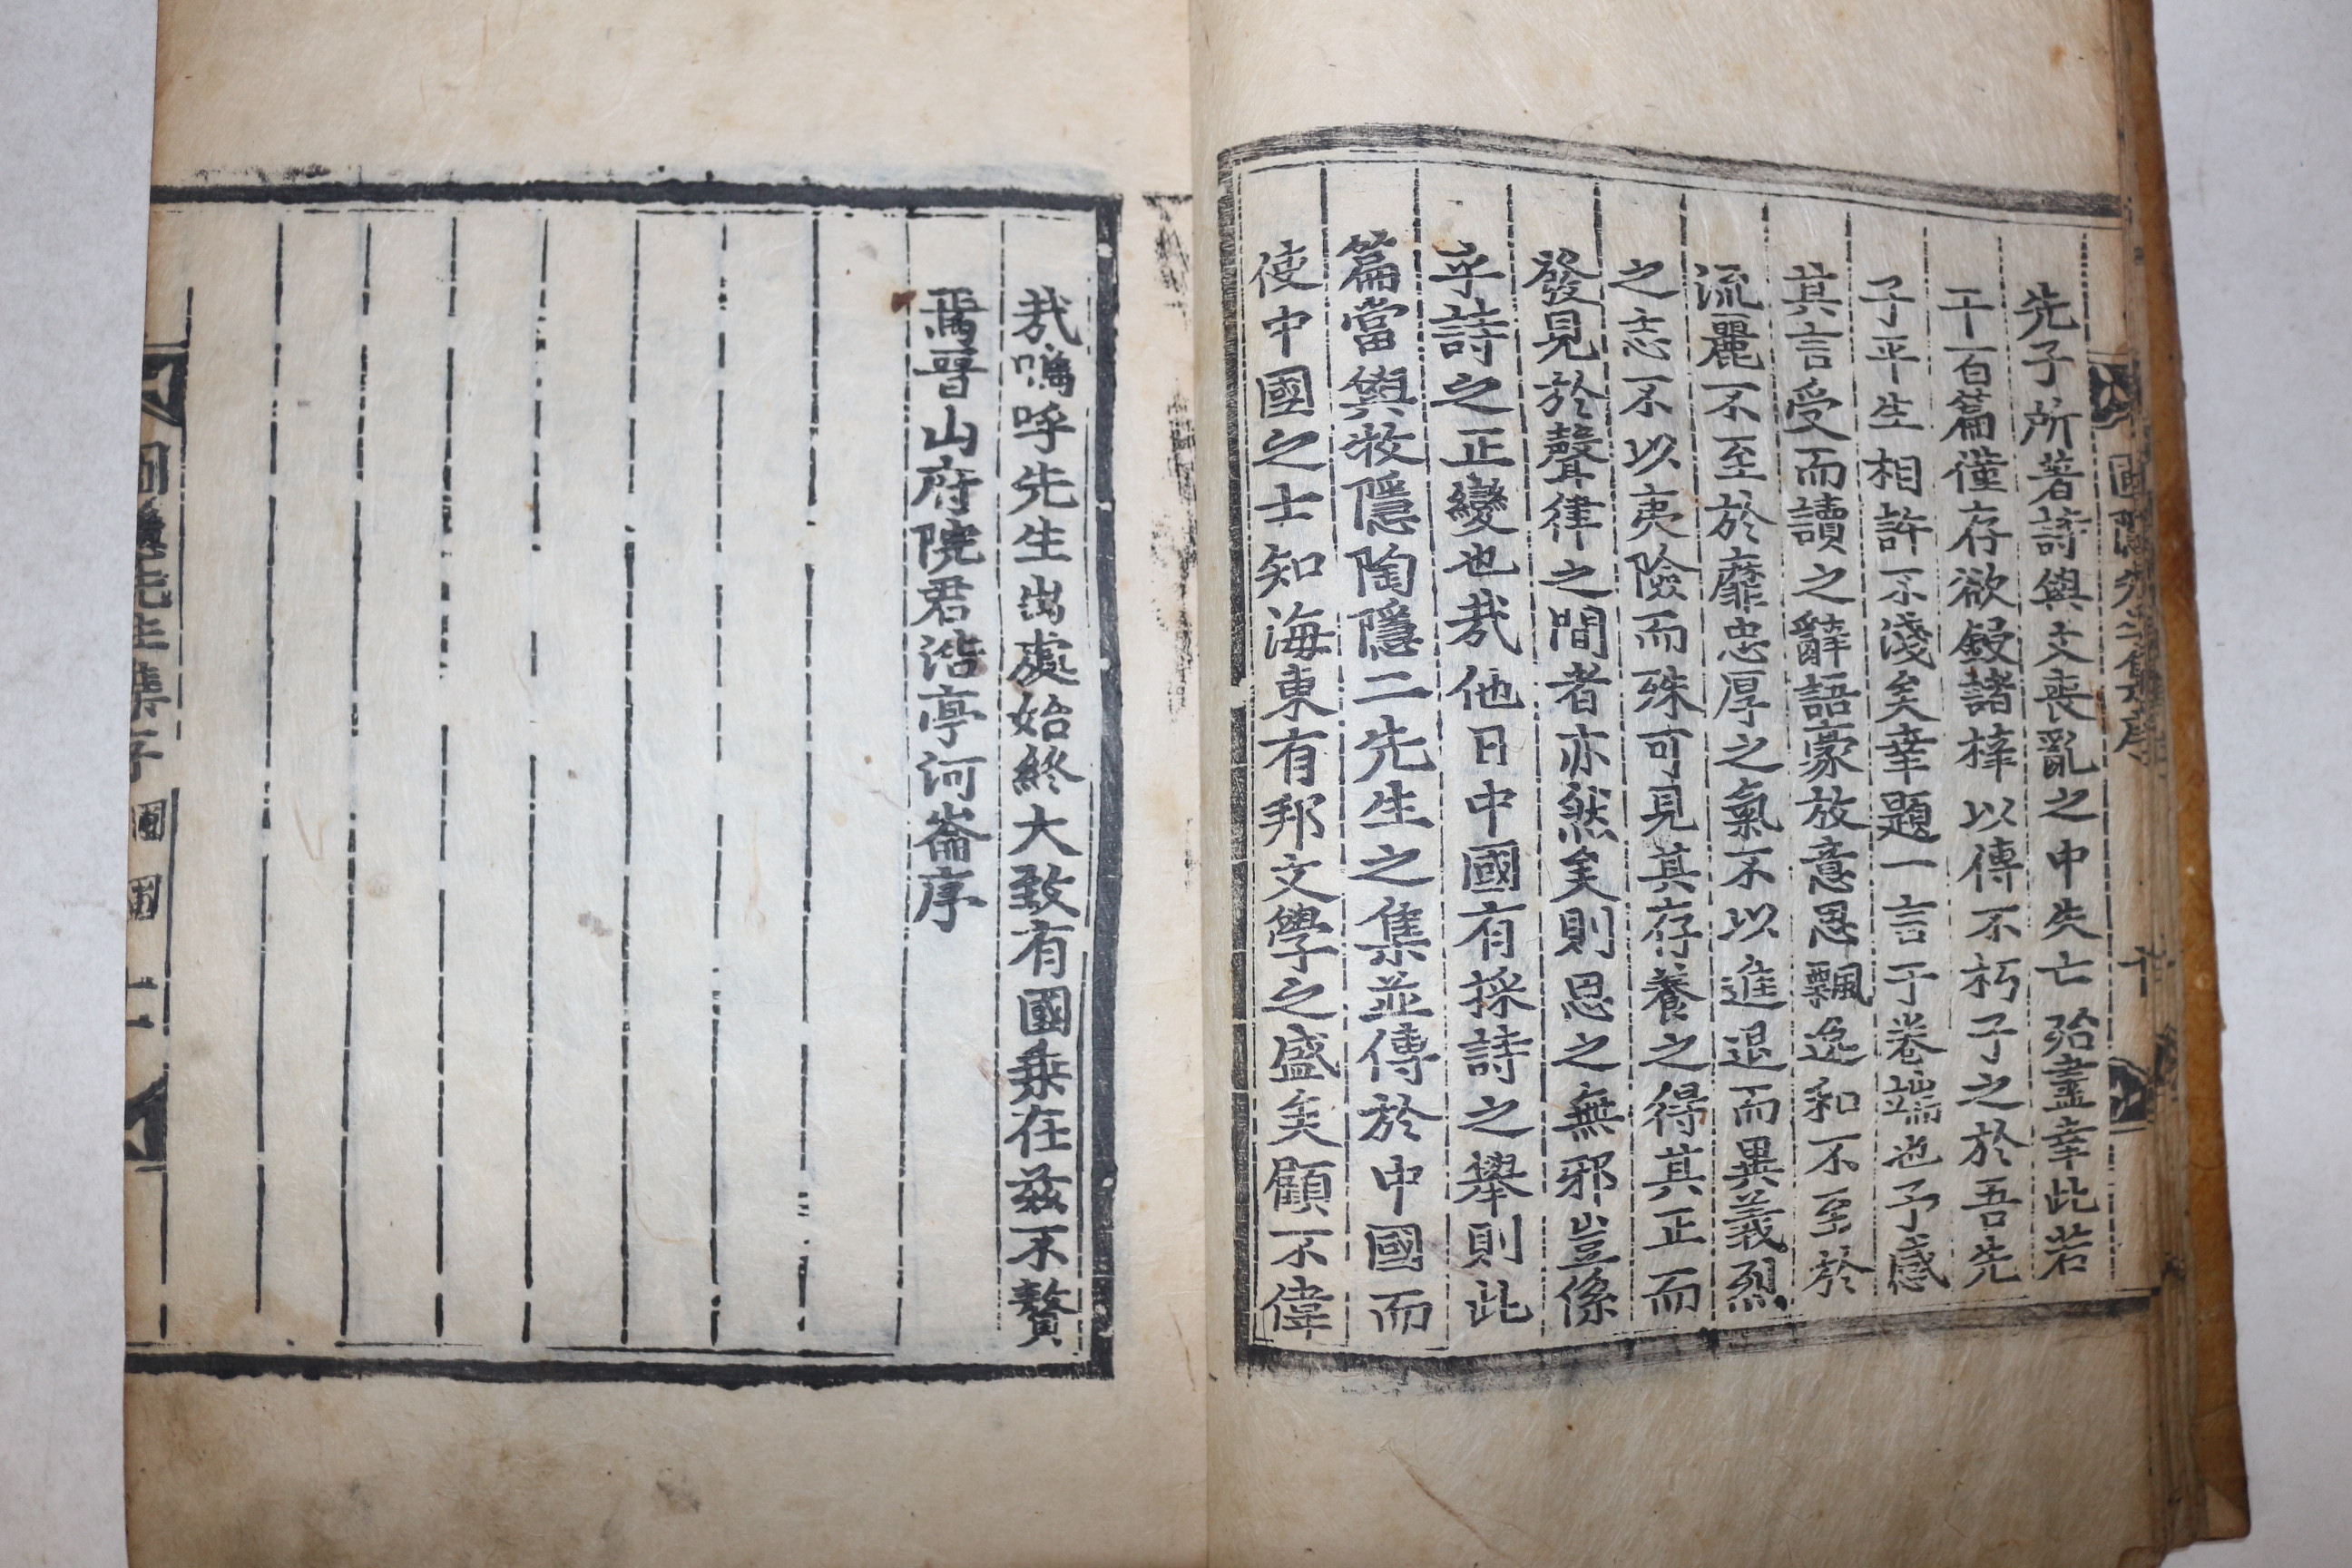 圃隱先生集序
十
先子所著詩與文喪亂之中失亡殆盡幸此若
干百篇僅存欲鋟諸梓以傳不朽子之於吾先
子平生相許不淺矣幸題一言于卷端也予感
其言受而讀之辭語豪放意思飄逸和不至於
流麗不至於靡忠厚之氣不以進退而異義烈
之志不以夷險而殊可見其存養之得其正而
發見於聲律之間者亦然矣則思之無邪豈係
乎詩之正變也哉他日中國有採詩之擧則此
篇當與牧隱陶隱二先生之集並傳於中國而
使中國之士知海東有邦文學之盛矣顧不偉
哉嗚呼先生出處始終大致有國乗在茲不贅
焉晉山府院君浩亭河崙序
圃隱先生集序
十一